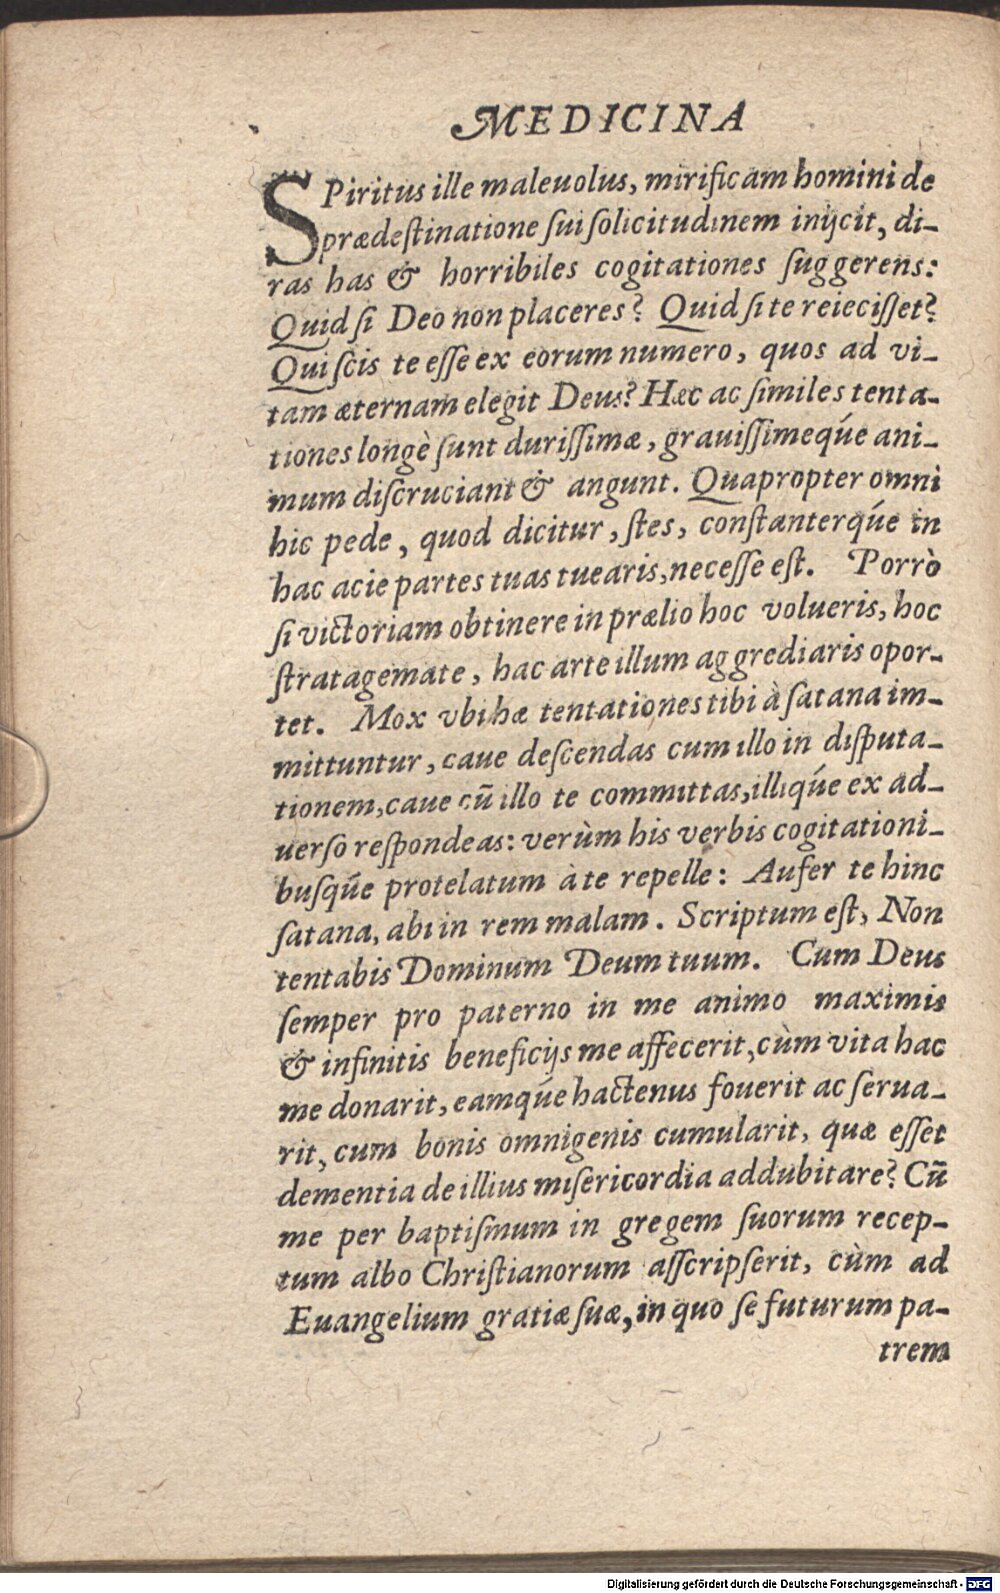 MEDICINA
SPiritus ille maleuolus, mirificam homini de
prædeſtinatione ſui ſolicitudinem inijcit, di-
ras has & horribiles cogitationes ſuggerens:
Quid ſi Deo non placeres? Quid ſi te reieciſſet?
Qui ſcis te eſſe ex eorum numero, quos ad vi-
tam æternam elegit Deus? Hæc ac ſimiles tenta-
tiones longè ſunt duriſſimæ, grauiſſimeq́ue ani-
mum diſcruciant & angunt. Quapropter omni
hic pede, quod dicitur, ſtes, conſtanterq́ue in
hac acie partes tuas tuearis, neceſſe eſt. Porrò
ſi victoriam obtinere in prælio hoc volueris, hoc
ſtratagemate, hac arte illum aggrediaris opor-
tet. Mox vbi hæ tentationes tibi à ſatana im-
mittuntur, caue deſcendas cum illo in diſputa-
tionem, caue cũ illo te committas, illiq́ue ex ad-
uerſo reſpondeas: verùm his verbis cogitationi-
buſq́ue protelatum à te repelle: Aufer te hinc
ſatana, abi in rem malam. Scriptum eſt, Non
tentabis Dominum Deum tuum. Cum Deus
ſemper pro paterno in me animo maximis
& infinitis beneficijs me affecerit, cùm vita hac
me donarit, eamq́ue hactenus fouerit ac ſerua-
rit, cum bonis omnigenis cumularit, quæ eſſet
dementia de illius miſericordia addubitare? Cũ
me per baptiſmum in gregem ſuorum recep-
tum albo Chriſtianorum aſſcripſerit, cùm ad
Euangelium gratiæ ſuæ, in quo ſe futurum pa-
trem
Digitalisierung gefördert durch die Deutsche Forschungsgemeinschaft - DFG